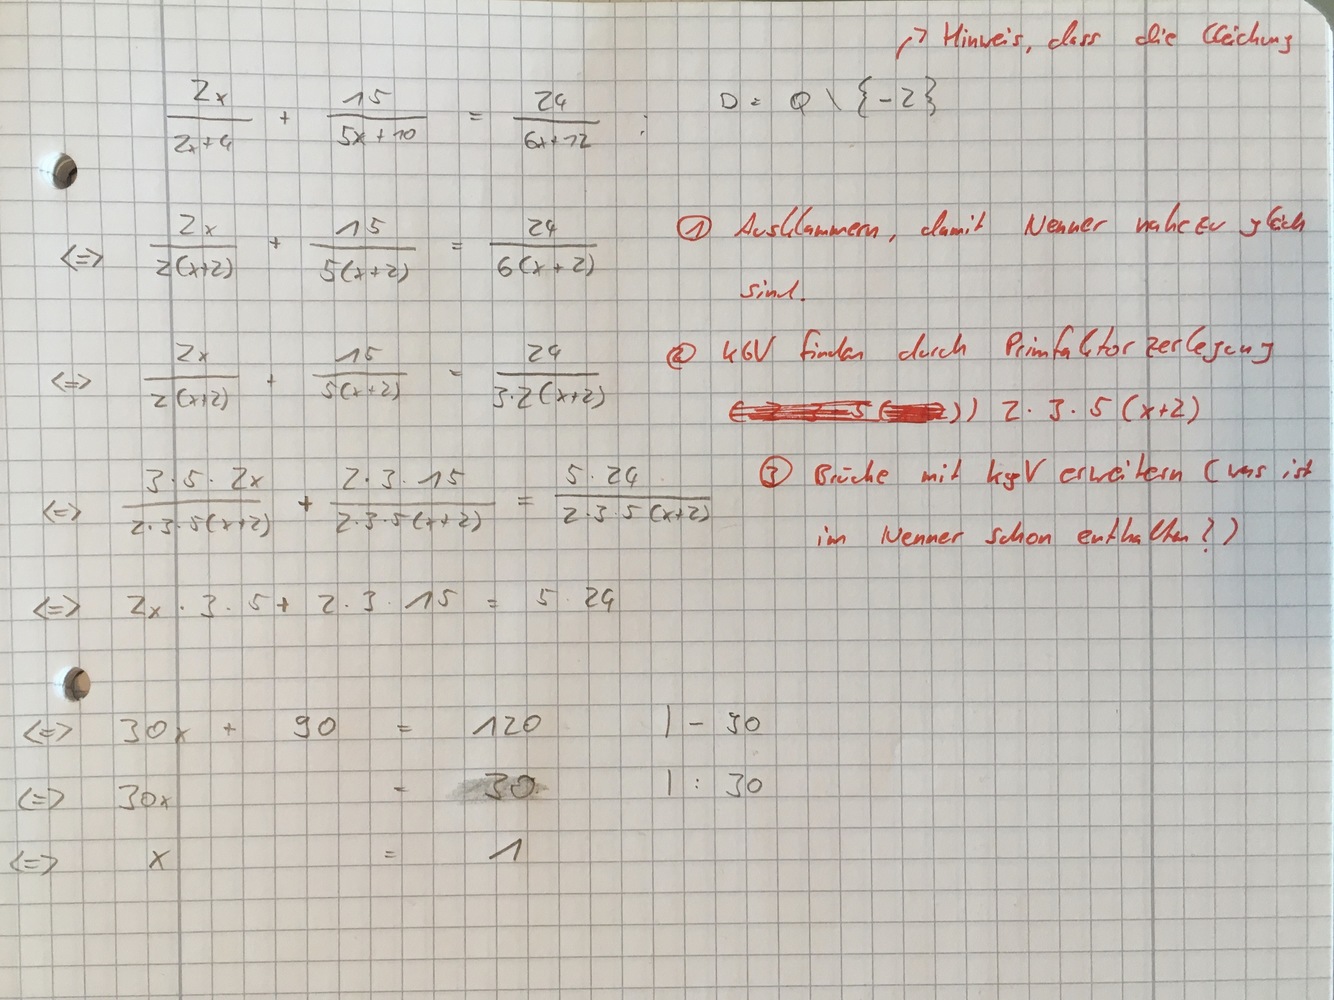 ↗ Hinweis, dass die Gleichung
2x/(2x+4) + 15/(5x+10) = 24/(6x+12) ; D = Q \ {-2}
<=> 2x/(2(x+2)) + 15/(5(x+2)) = 24/(6(x+2)) ① Ausklammern, damit Nenner nahezu gleich
sind.
<=> 2x/(2(x+2)) + 15/(5(x+2)) = 24/(3·2(x+2)) ② kGV finden durch Primfaktorzerlegung
2·3·5(x+2)
<=> 3·5·2x/(2·3·5(x+2)) + 2·3·15/(2·3·5(x+2)) = 5·24/(2·3·5(x+2)) ③ Brüche mit kgV erweitern (was ist
im Nenner schon enthalten?)
<=> 2x·3·5 + 2·3·15 = 5·24
<=> 30x + 90 = 120 | - 90
<=> 30x = 30 | : 30
<=> x = 1